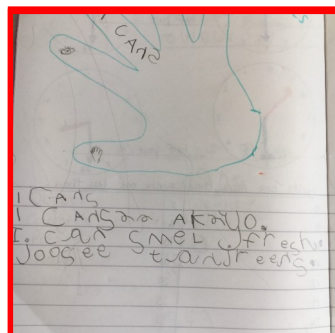 I CANS
I CANS
I CAN AKAYO.
I. can smel .fresh.
Joosee tanjreens.